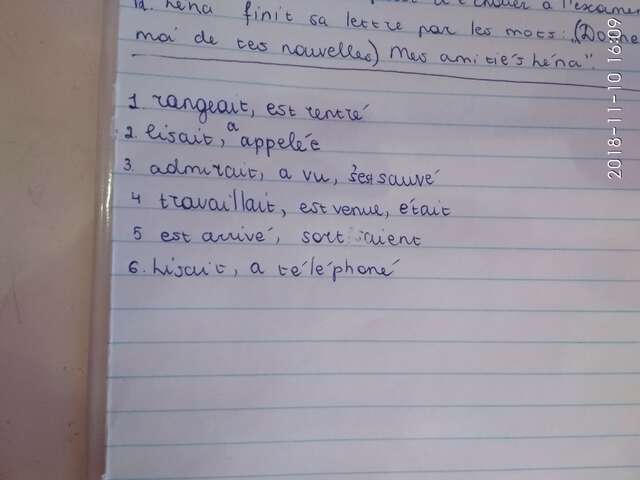 finit sa lettre par les mots: „(Donne
moi de tes nouvelles) Mes amitiés héna".
1. rangeait, est rentré
2. lisait, a appelée
3. admirait, a vu, s'est sauvé
4 travaillait, est venue, était
5 est arrivé, sortaient
6. Lisait, a téléphoné
2018-11-10 16:09